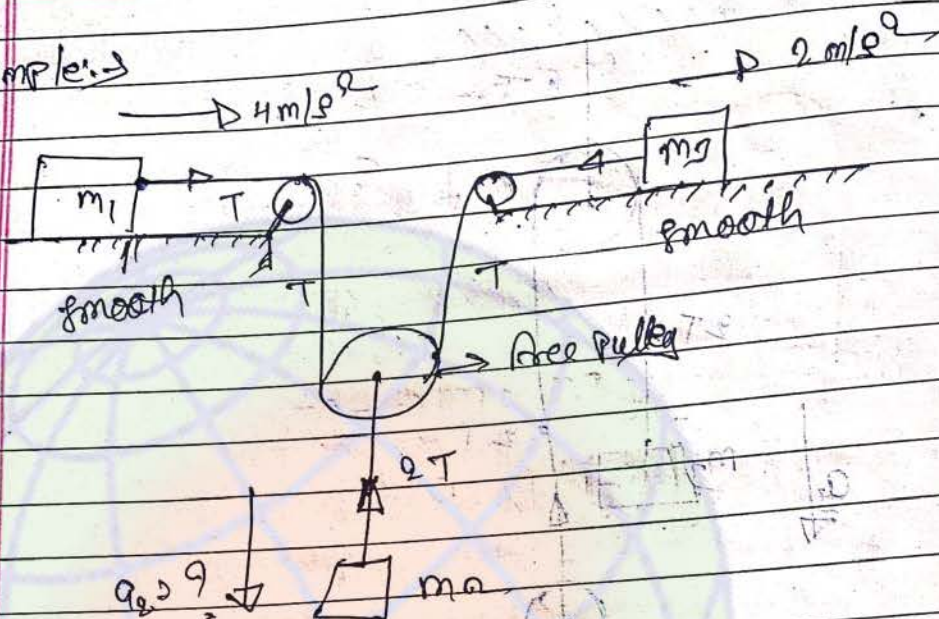 mple:→
4 m/s²
2 m/s²
m₁
T
m3
smooth
smooth
T
T
free pulley
2T
a₂ = ?
m2